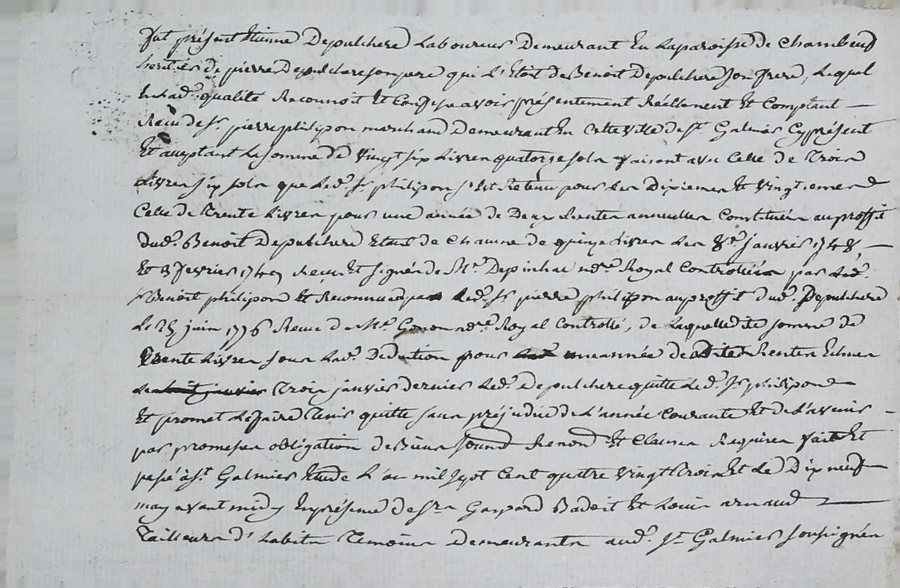 fut présent Etienne Depulchere Laboureur Demeurant En Laparoisse de Chambeuf
heritier de pierre Depulchere son pere qui L'Etoit de Benoit Depulchere son frere, Lequel
En lad. qualité Reconnoit Et Confesse avoir présentement Réellement Et Comptant
Recu de Sr. pierre philipon marchand Demeurant En Cette ville de St. Galmier Cy présent
Et acceptant La somme de Vingt six Livres quatorze sols faisant avec Celle de Trois
Livres six sols que Led. Sr philipon s'est Retenu pour Les Dixiemes Et Vingtiemes
Celle de Trente Livres pour une année de Deux Rentes annuelles Constituées au proffit
dud. Benoit Depulchere Etant de Chacune de quinze Livres Les 8e. janvier 1748,
Et 3 fevrier 1749 Recu Et signée de Me. Depinhac nore. Royal Controllées par Led.
Sr Benoit philipon Et Reconnues par Led. Sr pierre philipon au proffit dud. Depulchere
Le 25 juin 1776 Recue de Me. Gonon nore. Royal Controllé, de Laquelle dite somme de
Trente Livres sous Lad. Deduction pour une année desdites Rentes Echue
Trois janvier dernier Led. Depulchere quitte Led. Sr philipon
Et promet Le faire Tenir quitte sans préjudice de L'année Courante Et de L'avenir
par promesses obligation de Biens soumd. Renond. Et Clauses Requises fait Et
passé à St. Galmier Etude L'an mil sept Cent quatre Vingt Trois Et Le Dix neuf
may avant midy En présence de Srs Gaspard Badoit Et Louis arnaud
Tailleurs d'habits Temoins Demeurants aud. St. Galmier soussignés